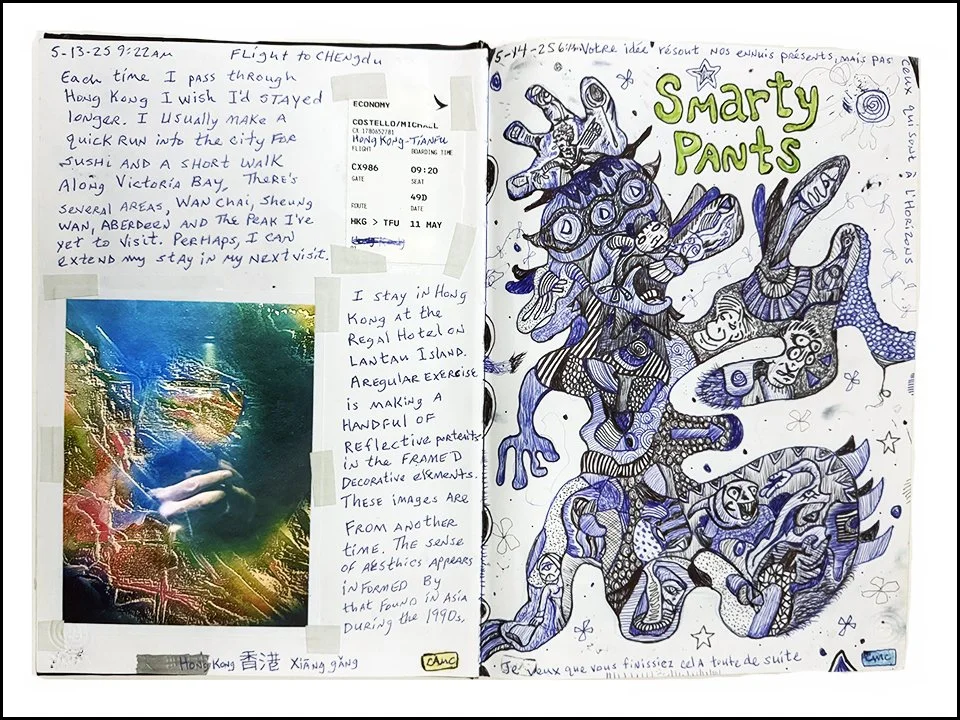 5-13-25 9:22AM Flight to CHENgdu
Each time I pass through
Hong Kong I wish I'd STAYed
longer. I Usually MAKE A
quick RUN into the city FOR
Sushi AND A short WALK
Along Victoria BAY, There's
several AREAS, WAN CHAi, Sheung
WAN, ABERDEEN AND The PEAK I've
yet to visit. Perhaps, I CAN
extend my stay in my next visit.
ECONOMY
COSTELLO/MICHAEL
CX 1780652781
HONG KONG-TIANFU
FLIGHT BOARDING TIME
CX986 09:20
GATE SEAT
49D
ROUTE DATE
HKG > TFU 11 MAY
I stay in Hong
Kong at the
Regal Hotel on
LANTAU ISLAND.
A regular Exercise
is making A
HANDFUL OF
Reflective portraits
in the FRAMED
Decorative elements.
These images are
FROM ANother
time. The sense
of AEsthics Appears
inFORMED By
that FOUND iN ASIA
DURING the 1990s.
Hong Kong 香港 Xiāng gǎng
CAMC
5-14-25 Votre idée résout NOS ennuis présents, mais pas
ceux qui sont à l'Horizons
Smarty
PANTS
Je veux que vous finissiez cela toute de suite
CMC